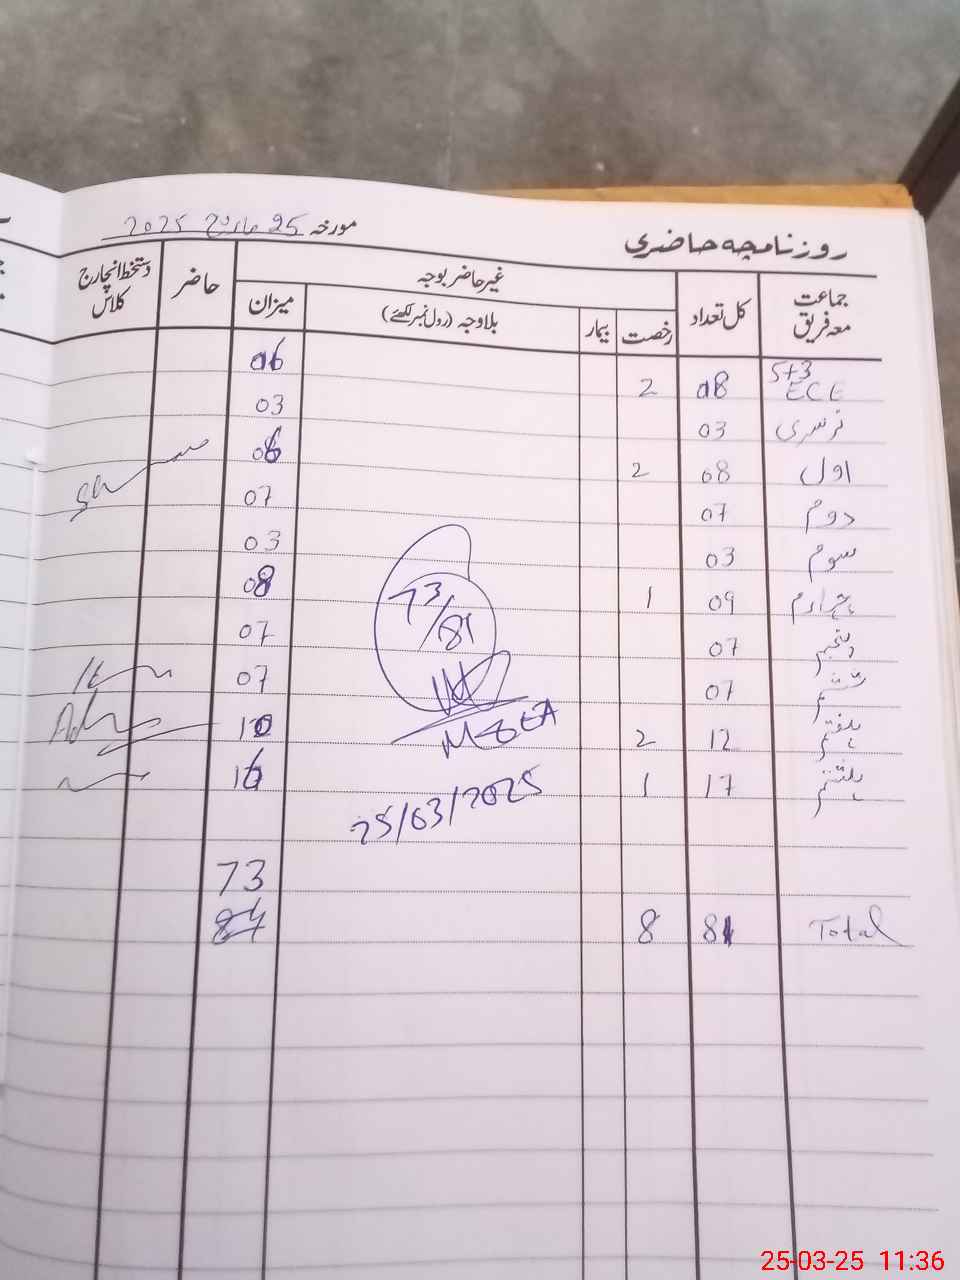 مورخہ 25 مارچ 2025
روزنامچہ حاضری
جماعت معہ فریق کل تعداد غیر حاضر بوجہ حاضر دستخط انچارج کلاس
رخصت بیمار بلاوجہ (رول نمبر لکھئے) میزان
5+3
ECE 08 2 06
نرسری 03 03
اول 08 2 06
دوم 07 07
سوم 03 03
چہارم 09 1 08
پنجم 07 07
ششم 07 07
ہفتم 12 2 10
ہشتم 17 1 16
73/81
MEA
25/03/2025
73
Total 81 8 84
25-03-25 11:36